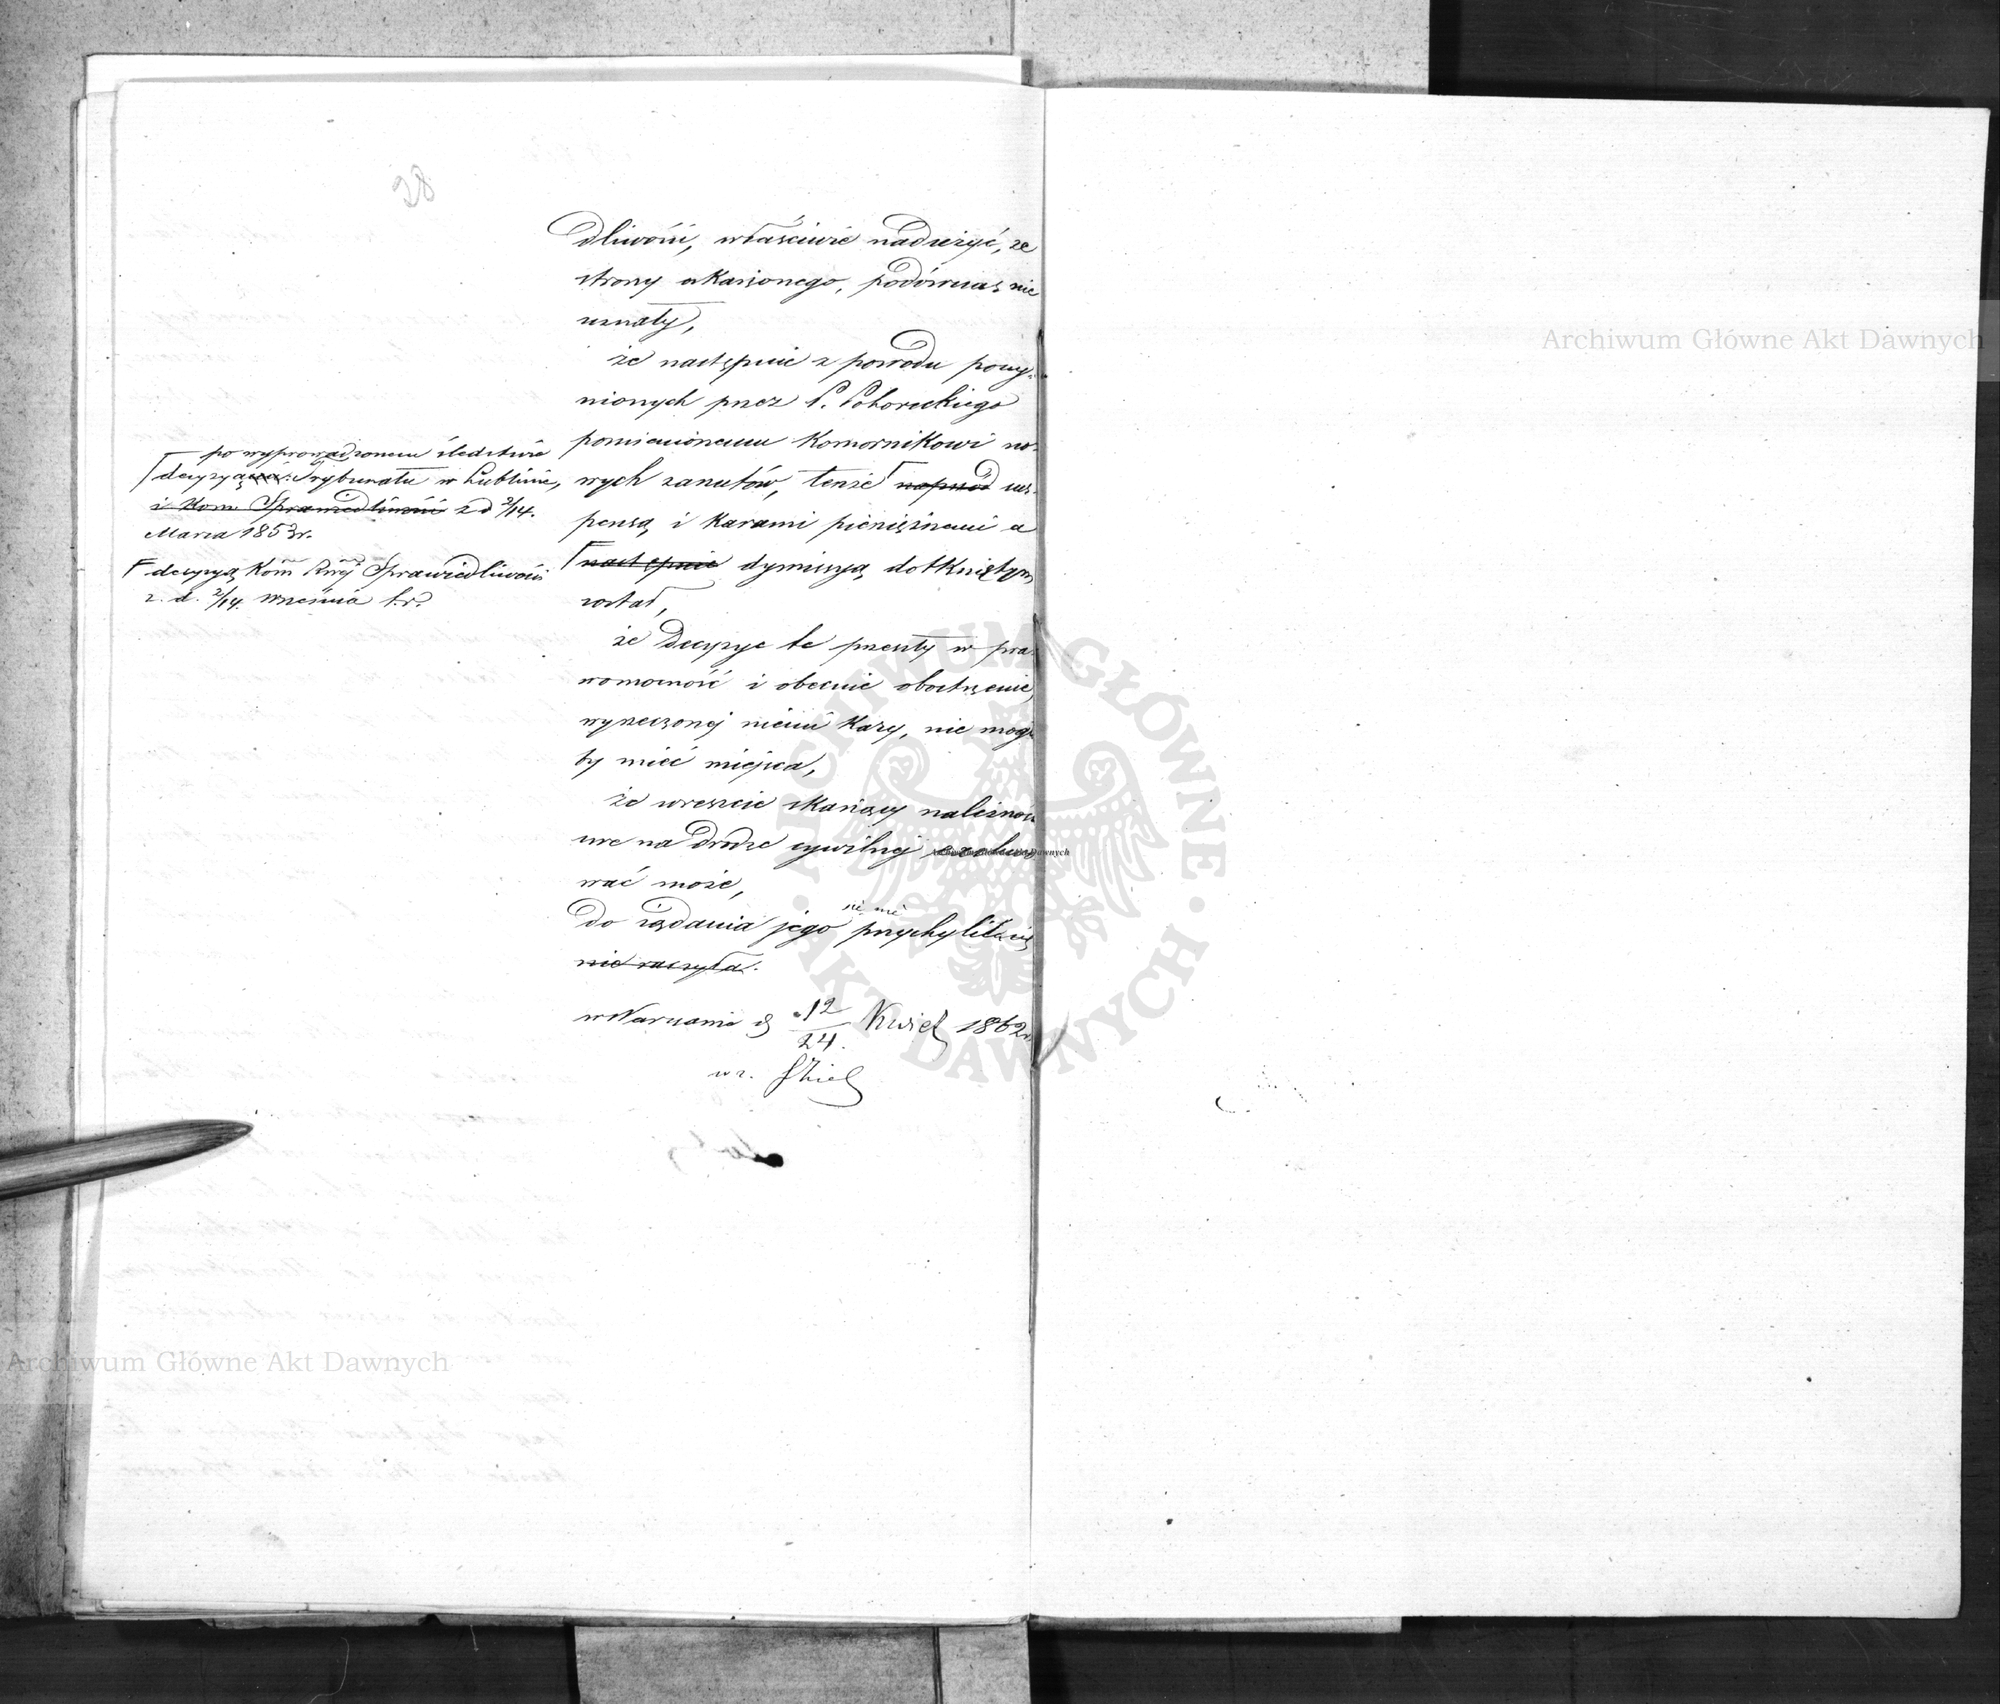 28
dliwości, właściwie nadużyć, ze
strony oskarżonego, podówczas nie
uznały,
że następnie z powodu poczy-
nionych przez P. Pohoreckiego
pomienionemu Komornikowi no-
wych zarzutów, tenże naprzód sus-
pensą i karami pieniężnemi a
następnie dymissyą dotkniętym
został,
że Decyzye te przeszły w pra-
womocność i obecnie obostrzenie
wyrzeczonej niemi kary, nie mogło
by mieć miejsca,
że wreszcie skarżący należności
swe na drodze cywilnej
wać może,
do żądania jego nie
przychylić się
nie raczyła.
w Warszawie d 12/24 Kwiet 1862 r.
wz.
po wyprowadzonem śledztwie
decyzyą Trybunału w Lublinie,
i Kom. Sprawiedliwości z d 2/14.
Marca 1853 r.
decyzyą Kom Rząj Sprawiedliwości
z. d. 2/14. września t.r.
Archiwum Główne Akt Dawnych
Archiwum Główne Akt Dawnych
Archiwum Główne Akt Dawnych
ARCHIWUM GŁÓWNE · AKT DAWNYCH ·